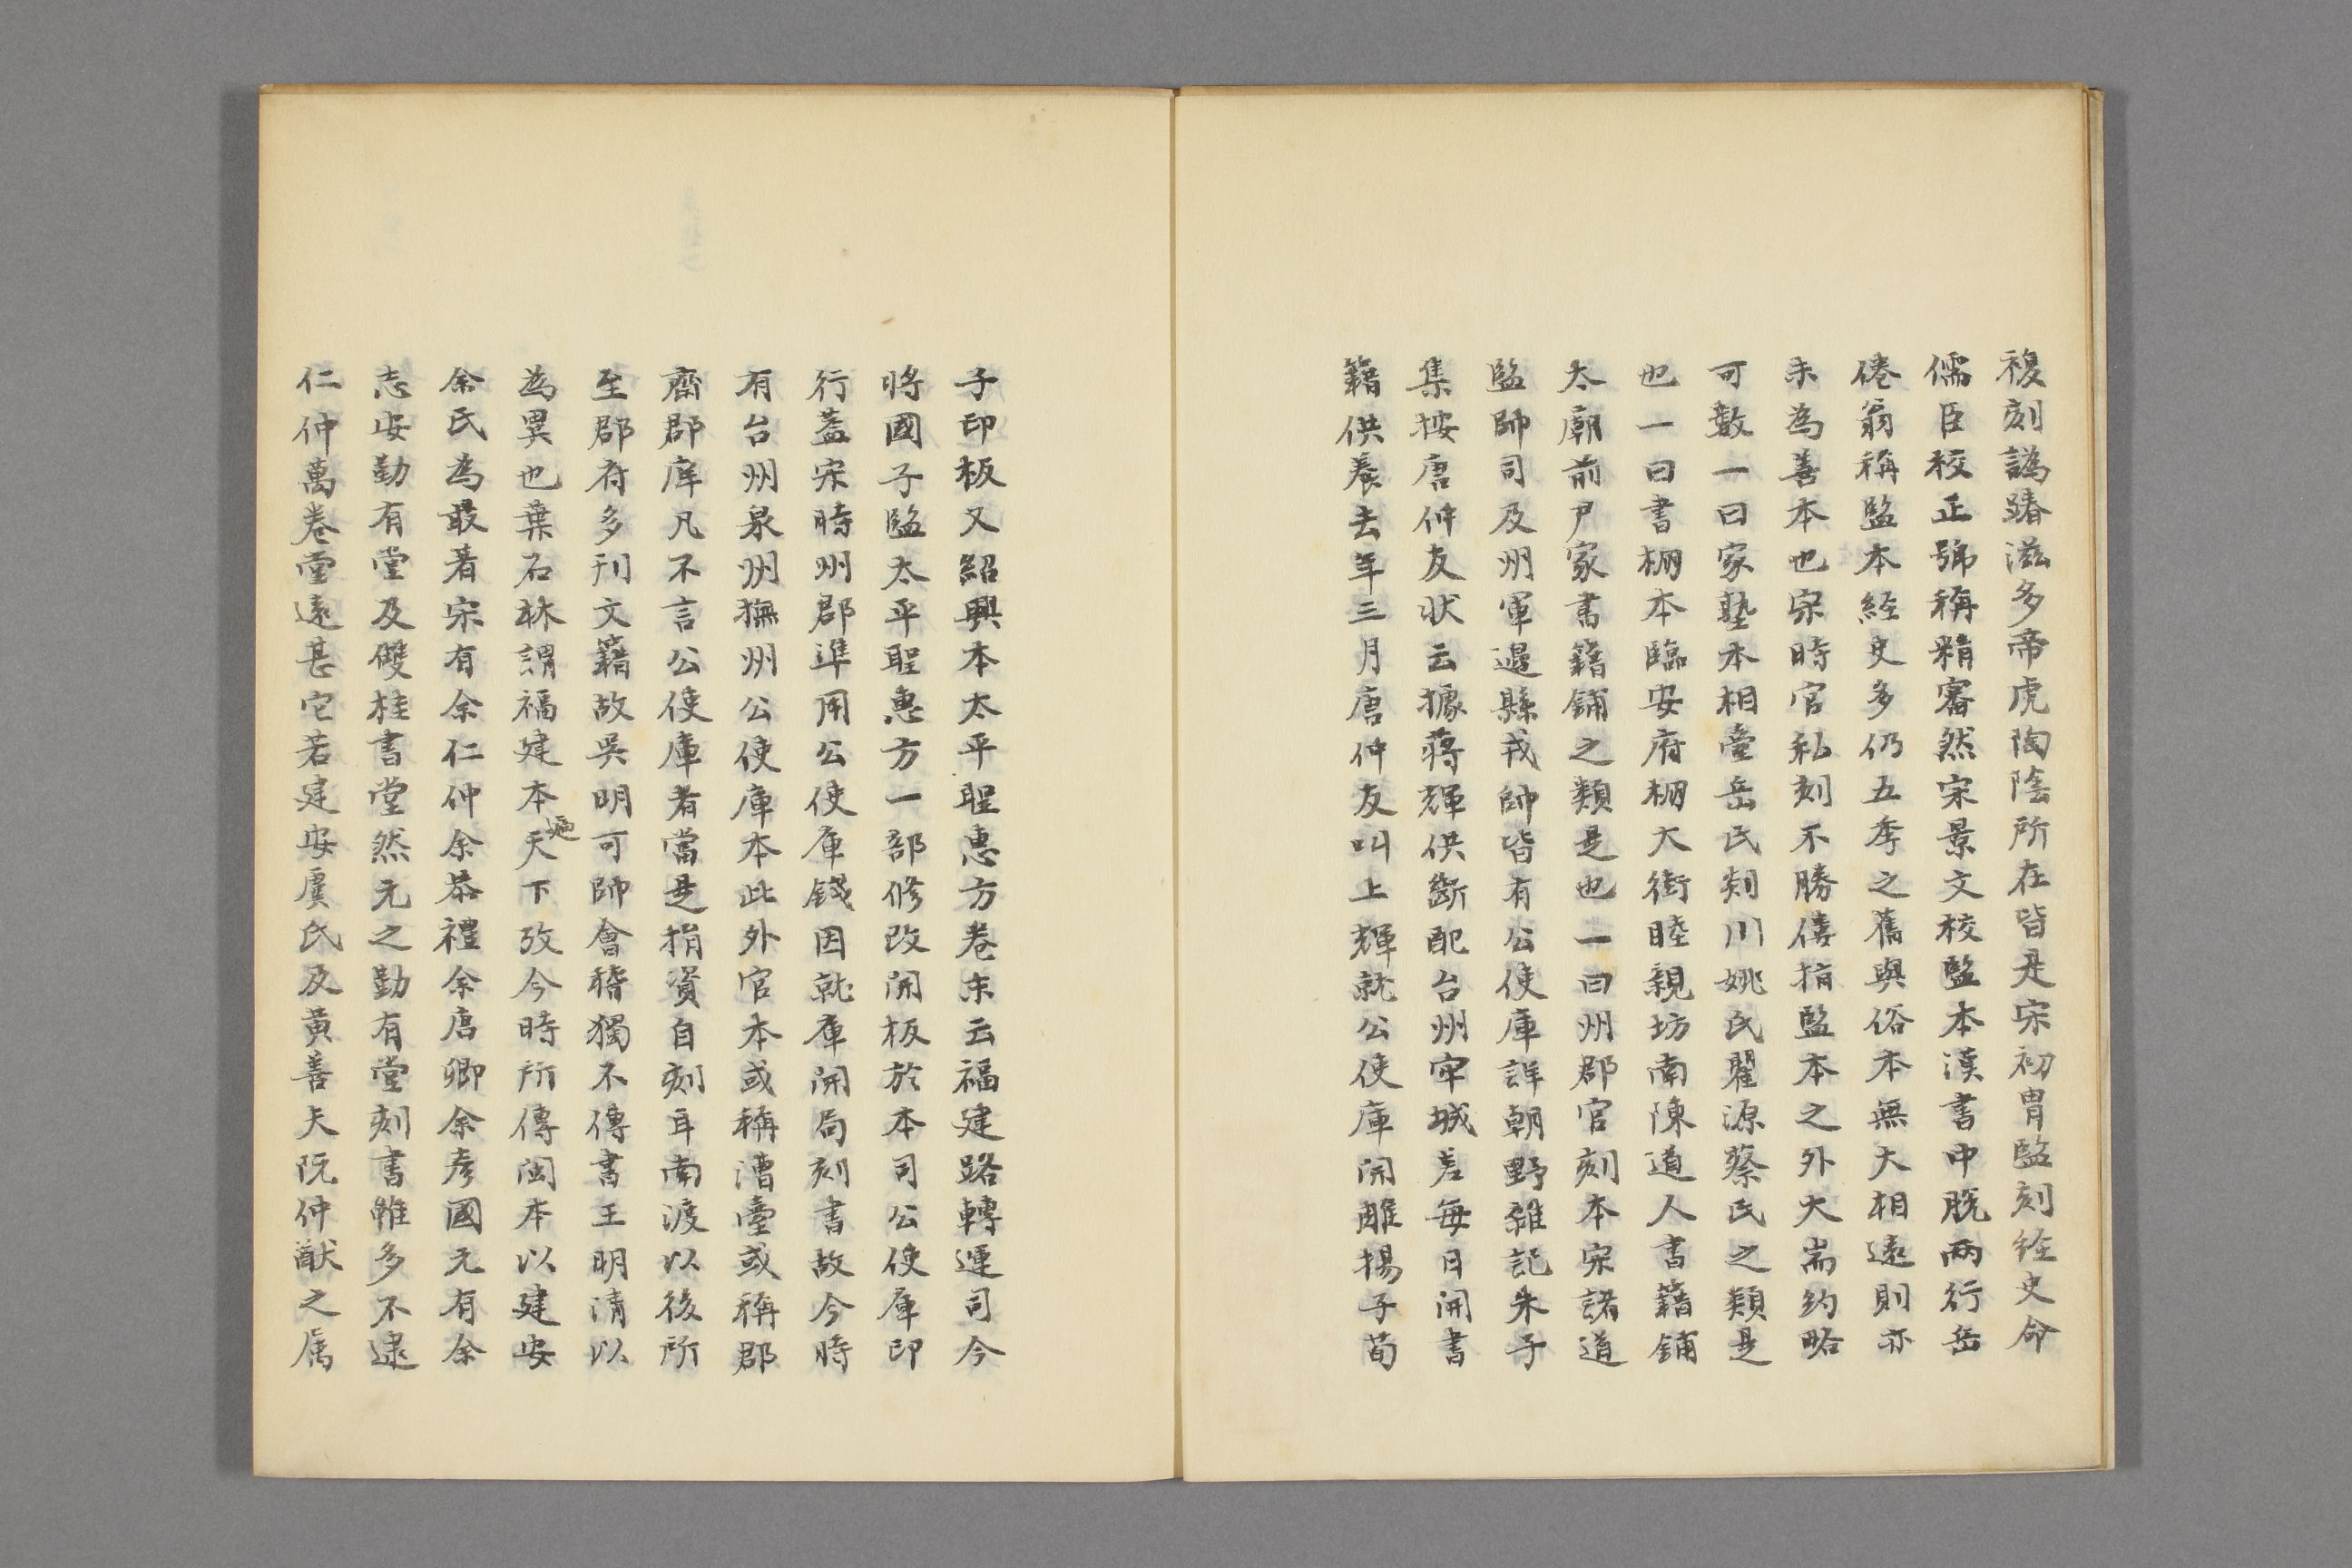 複刻譌踳滋多帝虎陶陰所在皆是宋初冑監刻經史命
儒臣校正號稱精審然宋景文校監本漢書中脱兩行岳
倦翁稱監本經史多仍五季之舊與俗本無大相遠則亦
未為善本也宋時官私刻不勝僂指監本之外大耑約略
可數一曰家塾本相臺岳氏剡川姚氏瞿源蔡氏之類是
也一曰書棚本臨安府棚大街睦親坊南陳道人書籍鋪
太廟前尹家書籍鋪之類是也一曰州郡官刻本宋諸道
監帥司及州軍邊縣戎帥皆有公使庫詳朝野雜記朱子
集按唐仲友狀云據蔣輝供斷配台州牢城差每日開書
籍供養去年三月唐仲友叫上輝就公使庫開雕揚子荀
子印板又紹興本太平聖惠方卷末云福建路轉運司今
將國子監太平聖惠方一部修改開板於本司公使庫印
行蓋宋時州郡準用公使庫錢因就庫開局刻書故今時
有台州泉州撫州公使庫本此外官本或稱漕臺或稱郡
齋郡庠凡不言公使庫者當是捐資自刻耳南渡以後所
至郡府多刊文籍故吳明可帥會稽獨不傳書王明清以
為異也葉石林謂福建本遍天下攷今時所傳閩本以建安
余氏為最著宋有余仁仲余恭禮余唐卿余彥國元有余
志安勤有堂及雙桂書堂然元之勤有堂刻書雖多不逮
仁仲萬卷堂遠甚它若建安虞氏及黃善夫阮仲猷之属